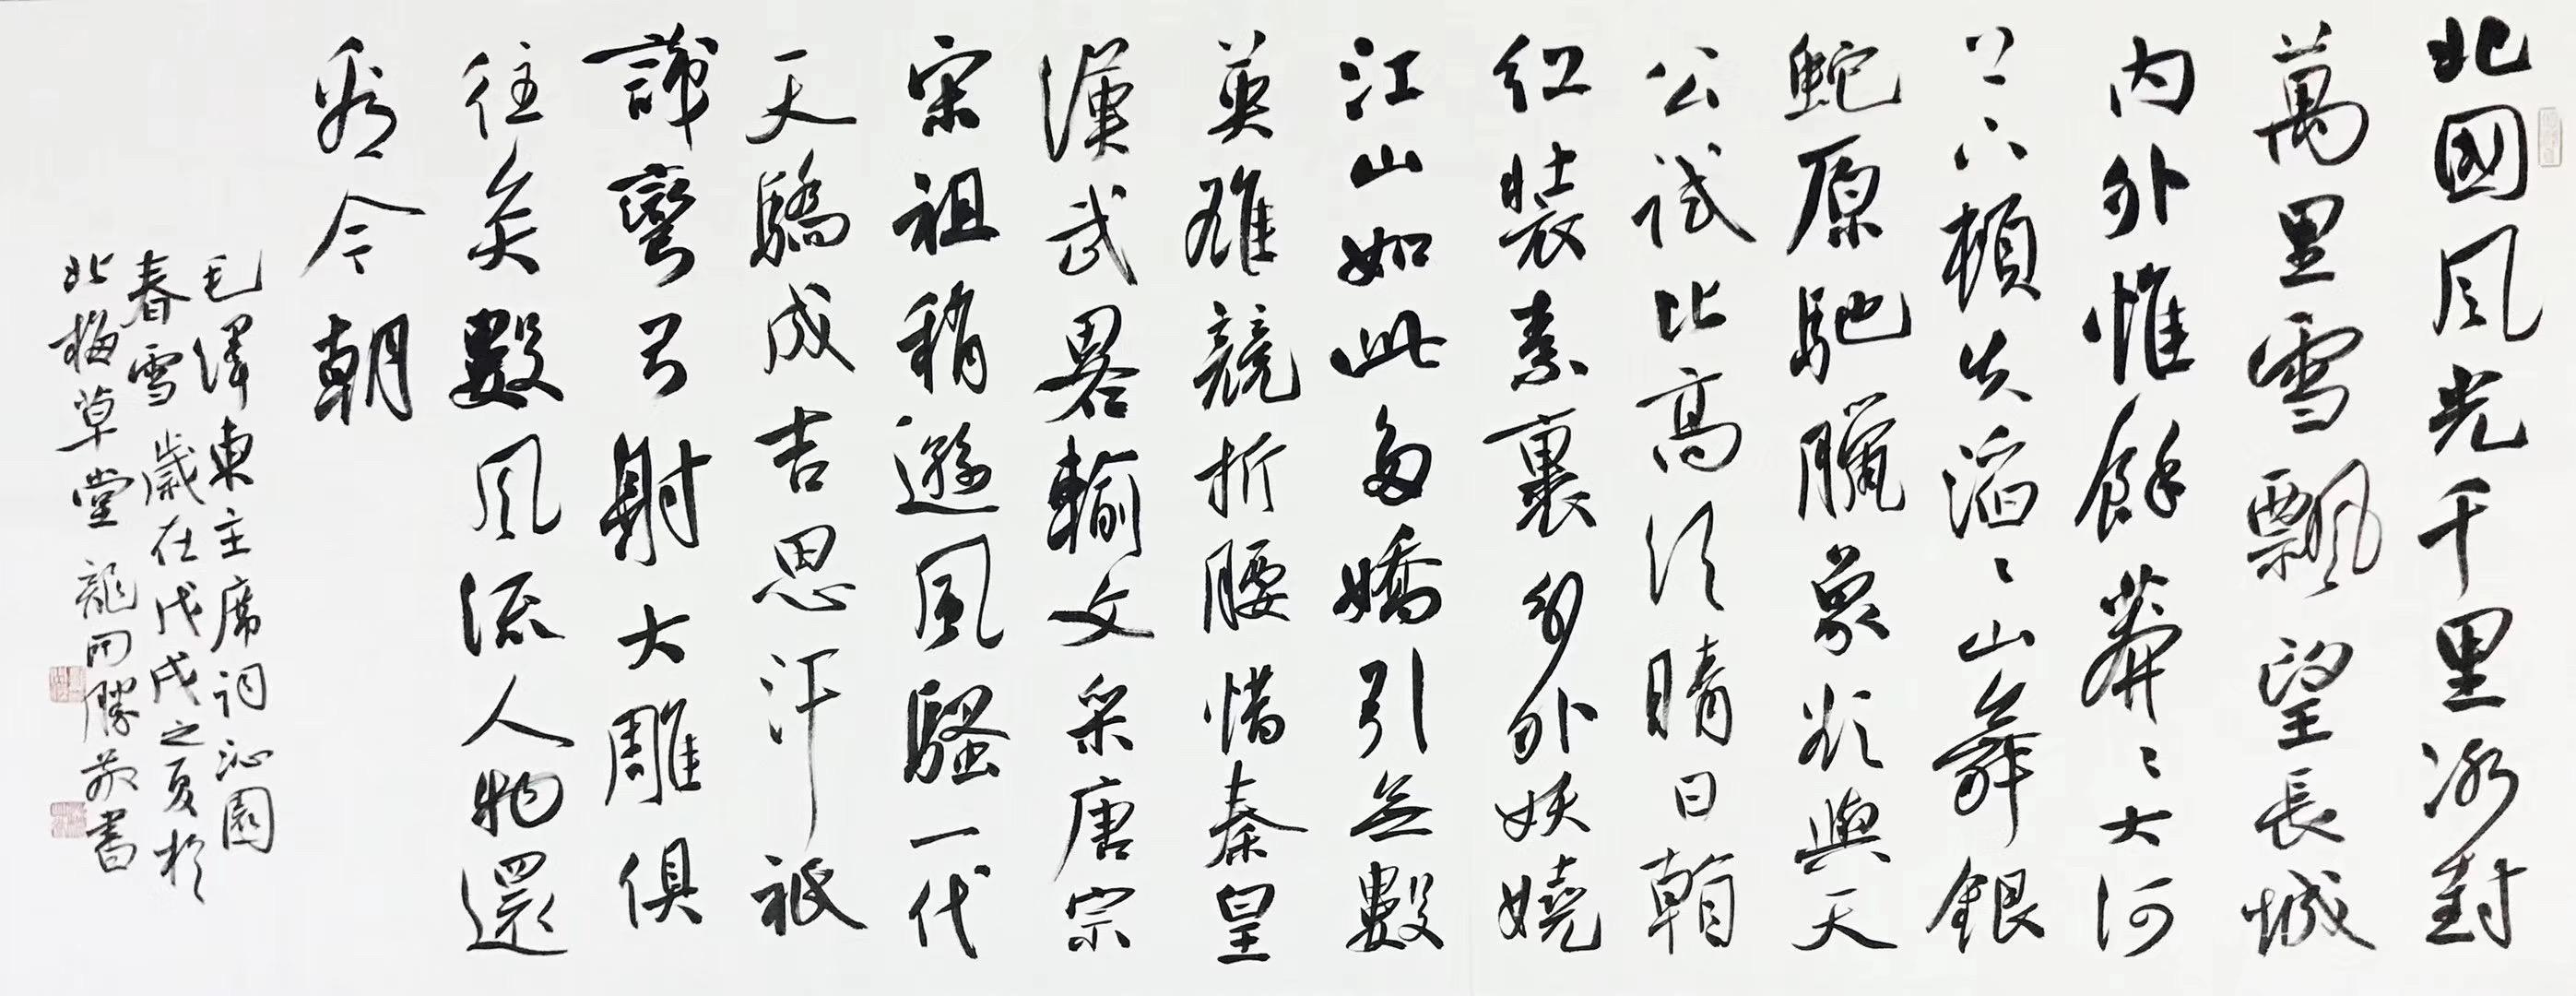 北國風光千里冰封
萬里雪飄望長城
内外惟餘莽〻大河
上下頓失滔〻山舞銀
蛇原馳臘象欲與天
公試比高須晴日看
紅裝素裹分外妖嬈
江山如此多嬌引無數
英雄競折腰惜秦皇
漢武畧輸文采唐宗
宋祖稍遜風騷一代
天驕成吉思汗祇
識彎弓射大雕俱
往矣數風流人物還
看今朝
毛澤東主席詞沁園
春雪歲在戊戌之夏於
北梅草堂龍勝敬書